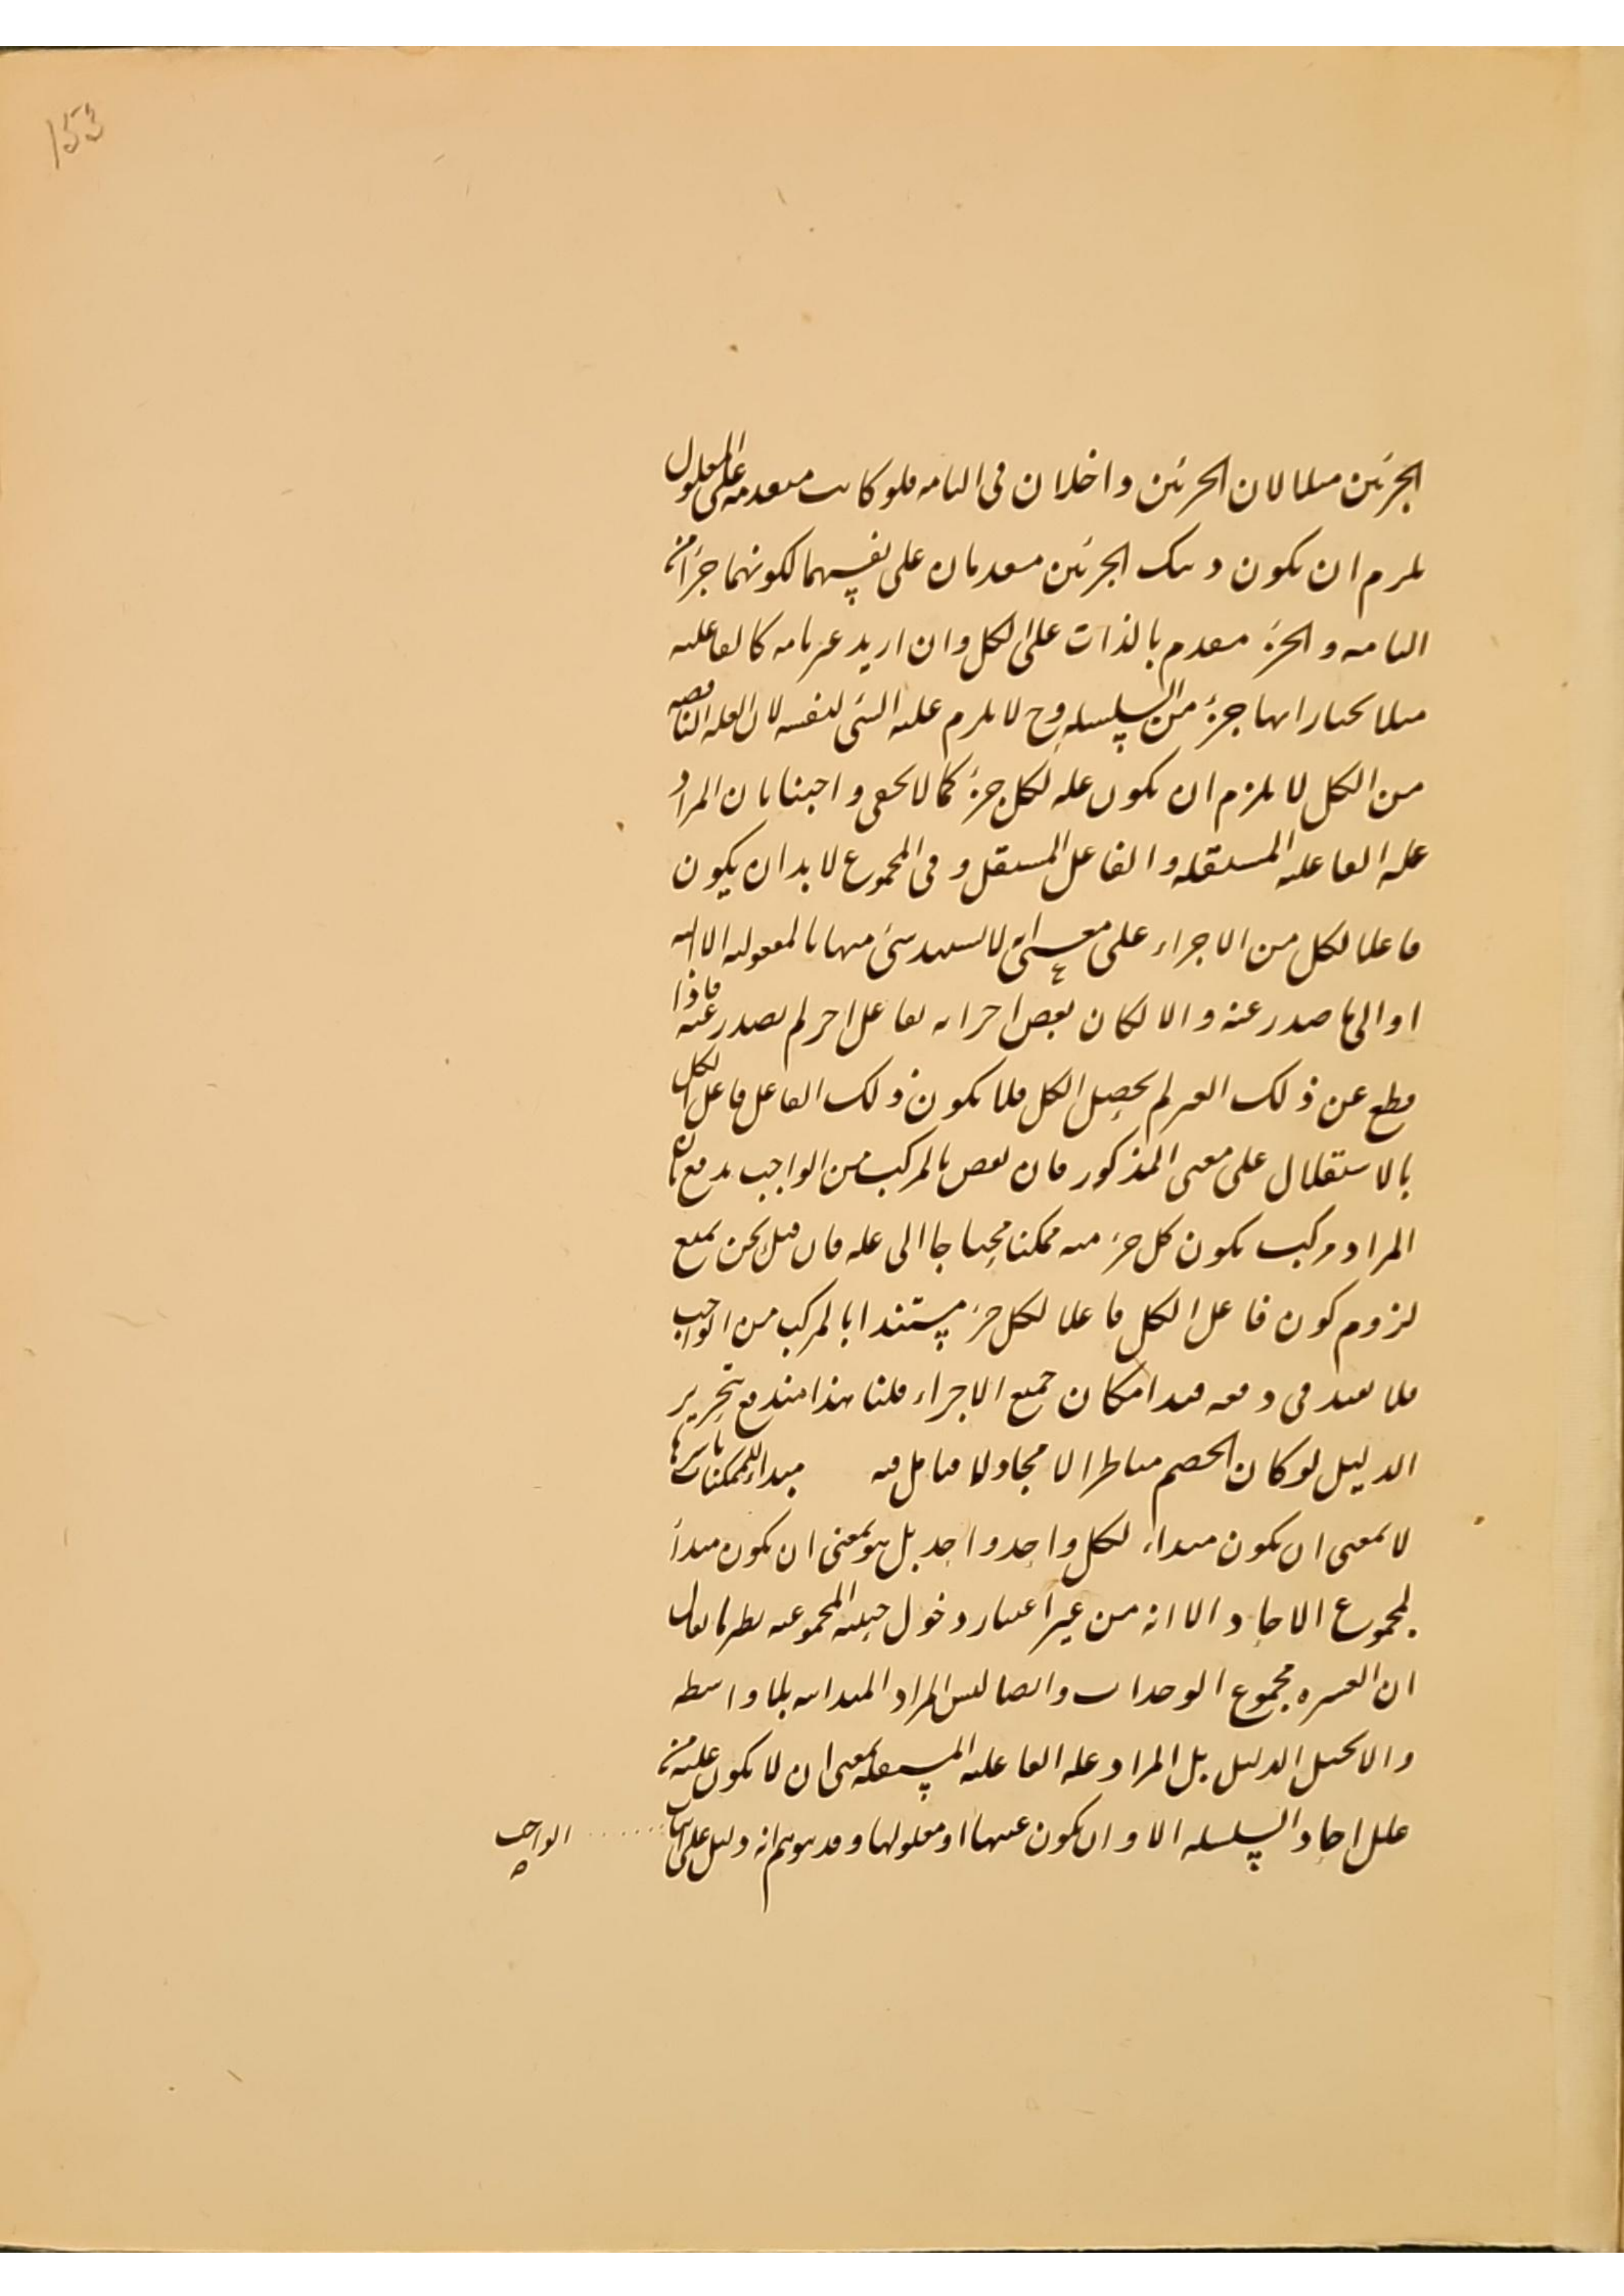 153
الجزئين مثلا لان الجزئين داخلان فى التامه فلو كانت متقدمه على المعلول
يلزم ان يكون ذينك الجزئين متقدمان على نفسهما لكونهما جزأ من
التامه والجزء متقدم بالذات على الكل وان اريد غير تامه كالفاعليه
مثلا نختار انها جزء من السلسله وح لا يلزم عليه الشئ لنفسه لان العله الناقصه
من الكل لا يلزم ان يكون عله لكل جزء كما لا يخفى واجبنا بان المراد
عله الفاعليه المستقله والفاعل المستقل وفى المجموع لابد ان يكون
فاعلا لكل من الاجزاء على معنى انه لا يستند شئ منها بالمعلوليه الا اليه
او الى ما صدر عنه والا لكان بعض اجزائه بفاعل اخر لم يصدر عنه فاذا
قطع عن ذلك الغير لم يحصل الكل فلا يكون ذلك الفاعل فاعل الكل
بالاستقلال على معنى المذكور فان نقض بالمركب من الواجب يدفع بان
المراد مركب يكون كل جزء منه ممكنا محتاجا الى عله فان قيل نحن نمنع
لزوم كون فاعل الكل فاعلا لكل جزء مستندا بالمركب من الواجب
فلا يفيد فى دفعه قيد امكان جميع الاجزاء قلنا هذا مندفع بتحرير
الدليل لو كان الخصم مناظرا لا مجادلا فتامل فيه مبداء للممكنات باسرها
لا بمعنى ان يكون مبداء لكل واحد واحد بل هو بمعنى ان يكون مبدأ
لمجموع الاحاد الا انه من غير اعتبار دخول حيثيه المجموعيه نظير ما يقال
ان العشره مجموع الوحدات وايضا ليس المراد المبدائيه بلا واسطه
والا يختل الدليل بل المراد عله الفاعليه المستقله بمعنى ان لا يكون عليه من
علل احاد السلسله الا وان يكون عينها او معلولها وقد يوهم انه دليل على اثبات ...... الواجب